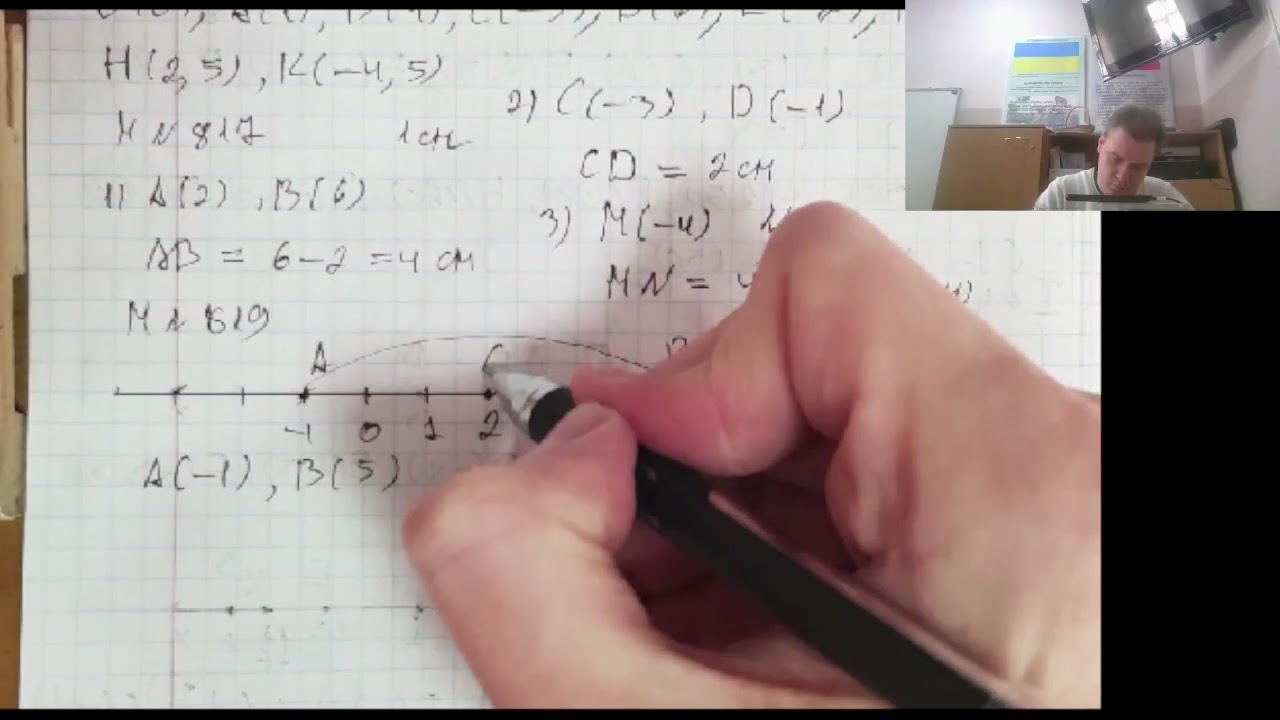 H(2,5), K(-4,5)
M N 817 1см
1) A(2), B(6)
AB = 6-2 = 4 см
2) C(-3), D(-1)
CD = 2 см
3) M(-4)
MN =
M N 819
A C
-1 0 1 2
A(-1), B(5)